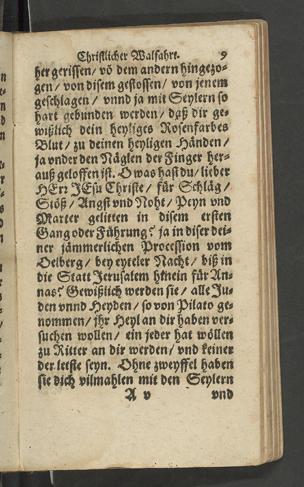 Christlicher Walfahrt. 9
her gerissen / võ dem andern hingezo-
gen / von disem gestossen / von jenem
geschlagen / vnnd ja mit Seylern so
hart gebunden werden / daß dir ge-
wißlich dein heyliges Rosenfarbes
Blut / zu deinen heyligen Händen /
ja vnder den Näglen der Finger her-
auß geloffen ist. O was hast du / lieber
HErr JEsu Christe / für Schläg /
Stöß / Angst vnd Noht / Peyn vnd
Marter gelitten in disem ersten
Gang oder Führung? ja in diser dei-
ner jämmerlichen Procession vom
Oelberg / bey eyteler Nacht / biß in
die Statt Jerusalem hinein für An-
nas? Gewißlich werden sie / alle Ju-
den vnnd Heyden / so von Pilato ge-
nommen / jhr Heyl an dir haben ver-
suchen wollen / ein jeder hat wöllen
zu Ritter an dir werden / vnd keiner
der letste seyn. Ohne zweyffel haben
sie dich vilmahlen mit den Seylern
A v vnd